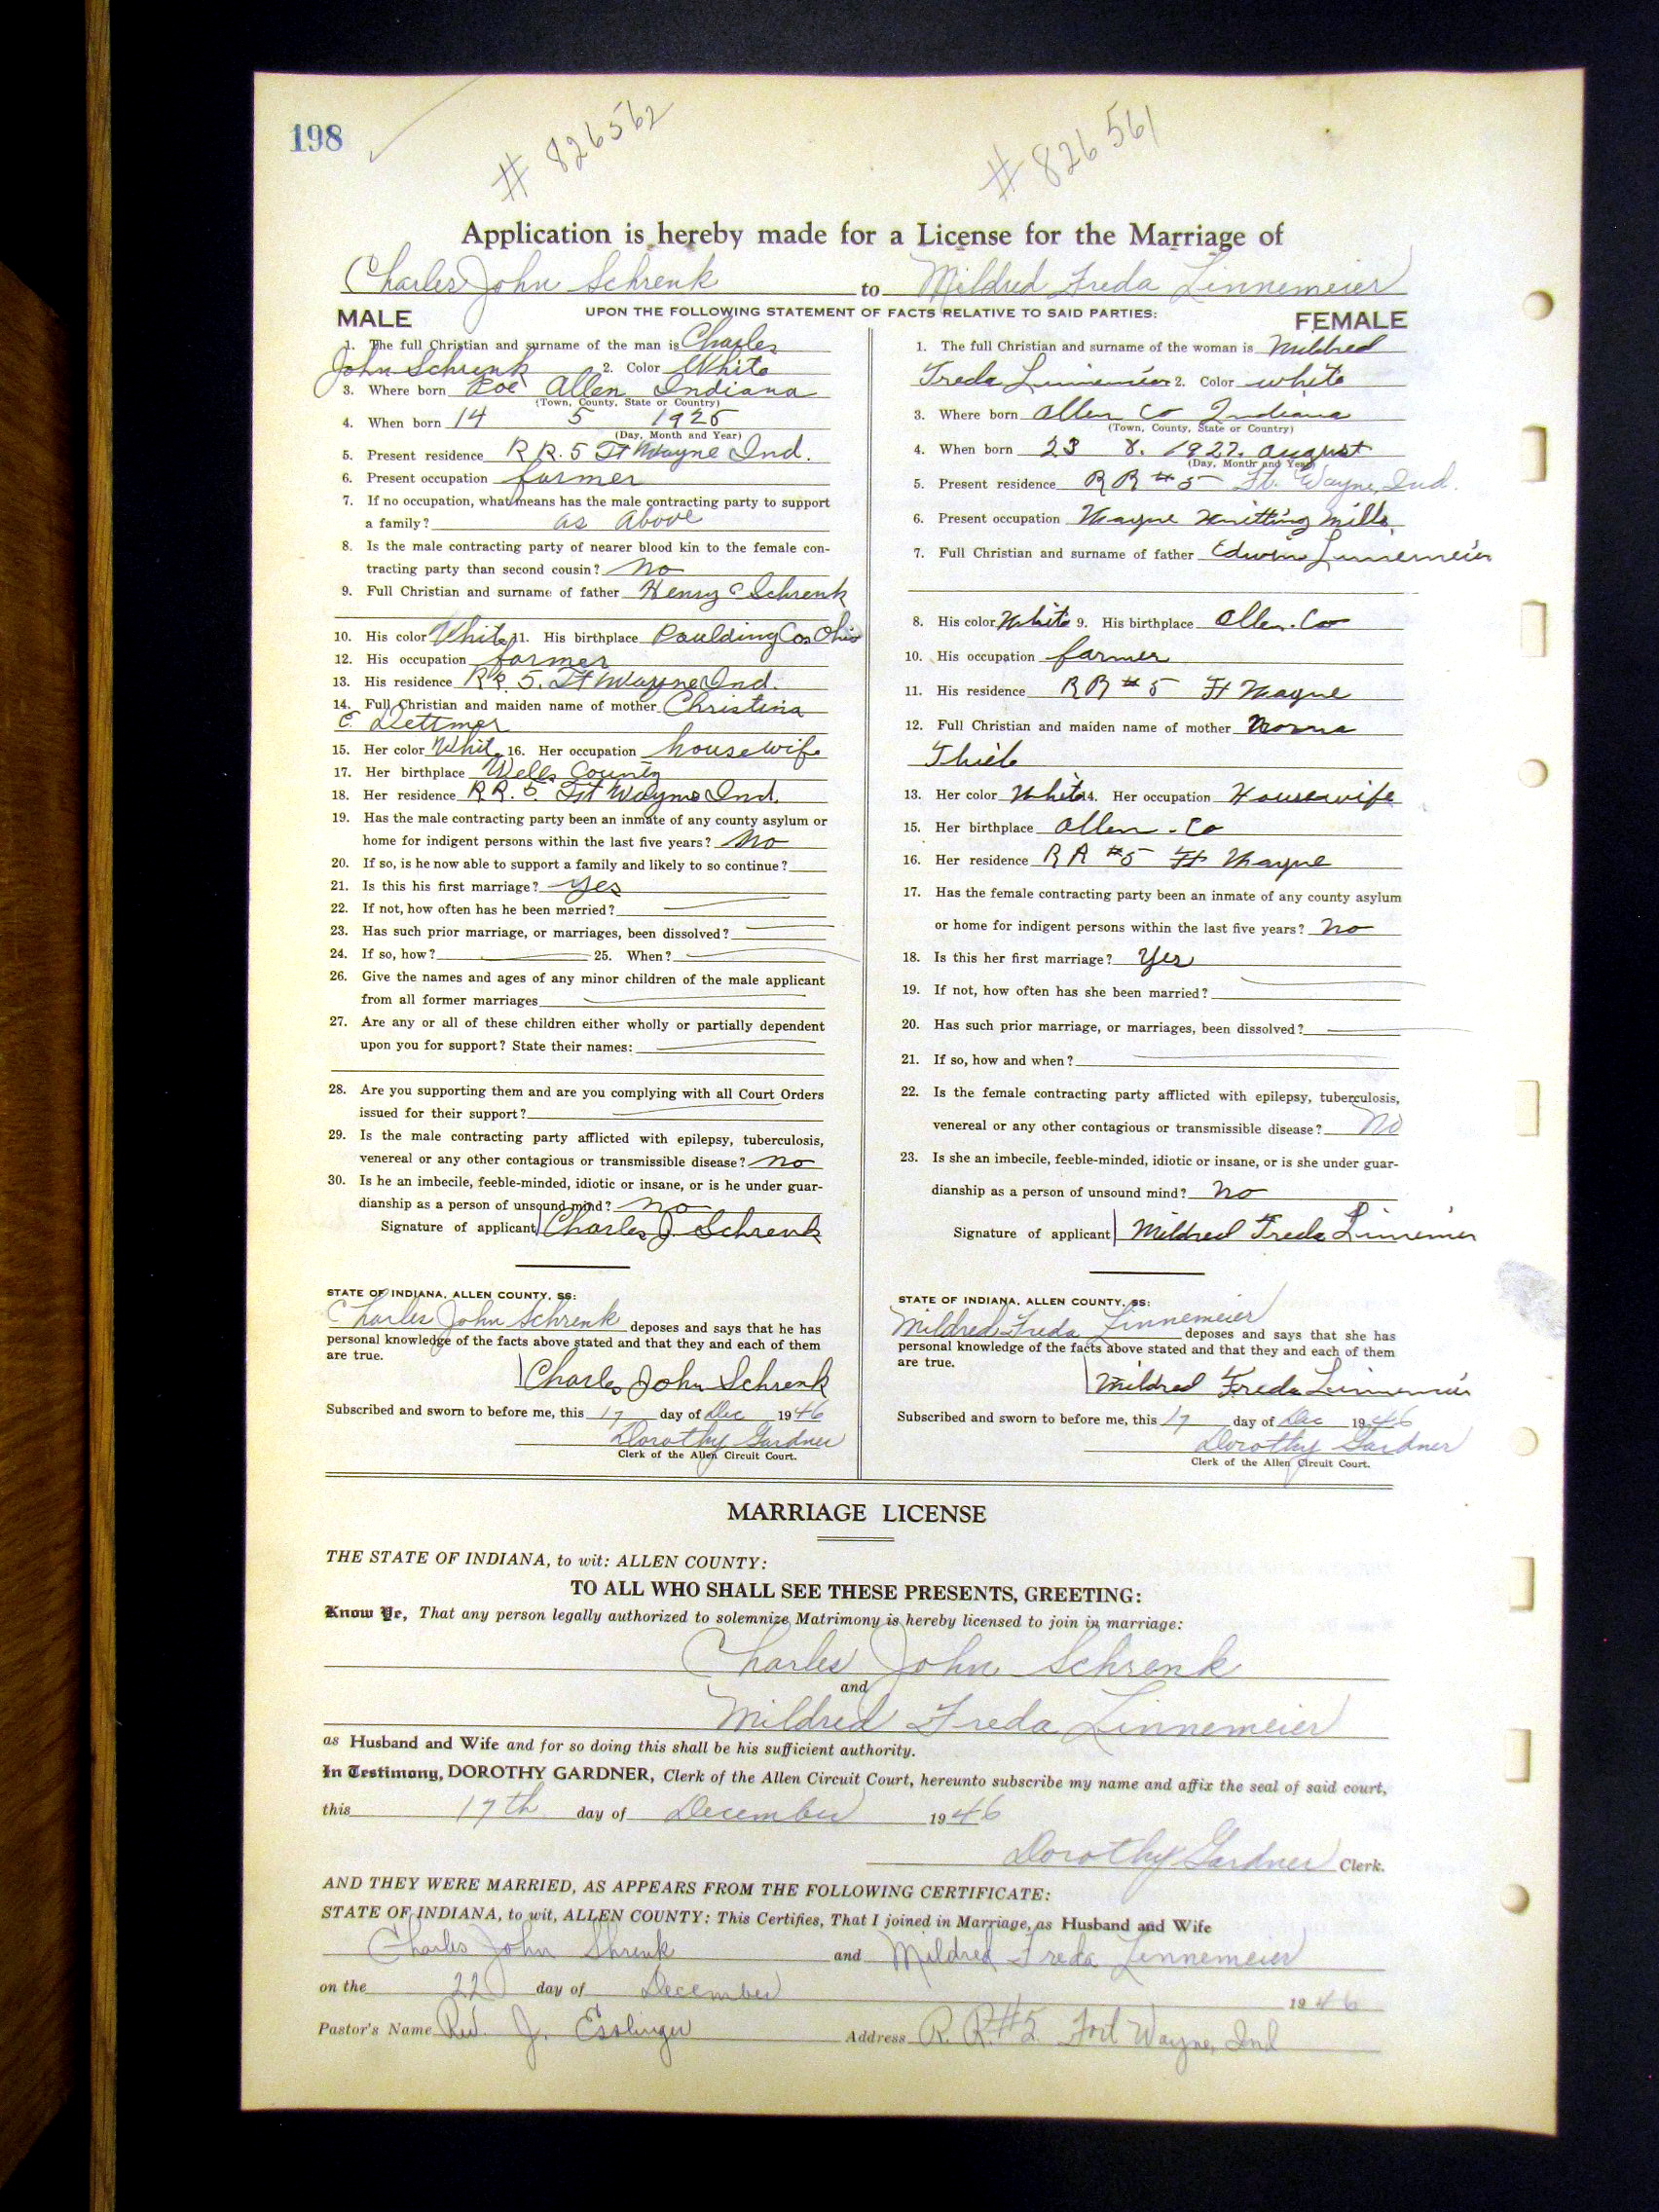 198
# 826562 # 826561
Application is hereby made for a License for the Marriage of
Charles John Schrenk to Mildred Freda Linnemeier
UPON THE FOLLOWING STATEMENT OF FACTS RELATIVE TO SAID PARTIES:
MALE
1. The full Christian and surname of the man is Charles
John Schrenk 2. Color White
3. Where born Poe Allen Indiana
(Town, County, State or Country)
4. When born 14 5 1925
(Day, Month and Year)
5. Present residence R R. 5 Ft Wayne Ind.
6. Present occupation farmer
7. If no occupation, what means has the male contracting party to support
a family? as above
8. Is the male contracting party of nearer blood kin to the female con-
tracting party than second cousin? no
9. Full Christian and surname of father Henry C Schrenk
10. His color White 11. His birthplace Paulding Co. Ohio
12. His occupation farmer
13. His residence RR. 5. Ft Wayne Ind.
14. Full Christian and maiden name of mother Christina
C Dettmer
15. Her color Whit 16. Her occupation housewife
17. Her birthplace Wells County
18. Her residence R R. 5. Ft Wayne Ind.
19. Has the male contracting party been an inmate of any county asylum or
home for indigent persons within the last five years? No
20. If so, is he now able to support a family and likely to so continue?
21. Is this his first marriage? yes
22. If not, how often has he been married?
23. Has such prior marriage, or marriages, been dissolved?
24. If so, how? 25. When?
26. Give the names and ages of any minor children of the male applicant
from all former marriages
27. Are any or all of these children either wholly or partially dependent
upon you for support? State their names:
28. Are you supporting them and are you complying with all Court Orders
issued for their support?
29. Is the male contracting party afflicted with epilepsy, tuberculosis,
venereal or any other contagious or transmissible disease? no
30. Is he an imbecile, feeble-minded, idiotic or insane, or is he under guar-
dianship as a person of unsound mind? no
Signature of applicant Charles J. Schrenk
STATE OF INDIANA, ALLEN COUNTY, SS:
Charles John Schrenk deposes and says that he has
personal knowledge of the facts above stated and that they and each of them
are true.
Charles John Schrenk
Subscribed and sworn to before me, this 17 day of Dec 1946
Dorothy Gardner
Clerk of the Allen Circuit Court.
FEMALE
1. The full Christian and surname of the woman is Mildred
Freda Linnemeier 2. Color white
3. Where born Allen Co Indiana
(Town, County, State or Country)
4. When born 23 8. 1927. August
(Day, Month and Year)
5. Present residence R R # 5 Ft. Wayne, Ind.
6. Present occupation Wayne Knitting Mills
7. Full Christian and surname of father Edwin Linnemeier
8. His color White 9. His birthplace Allen. Co
10. His occupation farmer
11. His residence R R # 5 Ft Wayne
12. Full Christian and maiden name of mother Norma
Thiele
13. Her color White 14. Her occupation Housewife
15. Her birthplace Allen. Co
16. Her residence R R #5 Ft Wayne
17. Has the female contracting party been an inmate of any county asylum
or home for indigent persons within the last five years? no
18. Is this her first marriage? Yes
19. If not, how often has she been married?
20. Has such prior marriage, or marriages, been dissolved?
21. If so, how and when?
22. Is the female contracting party afflicted with epilepsy, tuberculosis,
venereal or any other contagious or transmissible disease? No
23. Is she an imbecile, feeble-minded, idiotic or insane, or is she under guar-
dianship as a person of unsound mind? no
Signature of applicant Mildred Freda Linnemeier
STATE OF INDIANA, ALLEN COUNTY, SS:
Mildred Freda Linnemeier deposes and says that she has
personal knowledge of the facts above stated and that they and each of them
are true.
Mildred Freda Linnemeier
Subscribed and sworn to before me, this 17 day of Dec 1946
Dorothy Gardner
Clerk of the Allen Circuit Court.
MARRIAGE LICENSE
THE STATE OF INDIANA, to wit: ALLEN COUNTY:
TO ALL WHO SHALL SEE THESE PRESENTS, GREETING:
Know Ye, That any person legally authorized to solemnize Matrimony is hereby licensed to join in marriage:
Charles John Schrenk
and
Mildred Freda Linnemeier
as Husband and Wife and for so doing this shall be his sufficient authority.
In Testimony, DOROTHY GARDNER, Clerk of the Allen Circuit Court, hereunto subscribe my name and affix the seal of said court,
this 17th day of December 1946
Dorothy Gardner Clerk.
AND THEY WERE MARRIED, AS APPEARS FROM THE FOLLOWING CERTIFICATE:
STATE OF INDIANA, to wit, ALLEN COUNTY: This Certifies, That I joined in Marriage, as Husband and Wife
Charles John Shrenk and Mildred Freda Linnemeier
on the 22 day of December 1946
Pastor's Name Rev. J. Esslinger Address R. R. #5 Fort Wayne, Ind